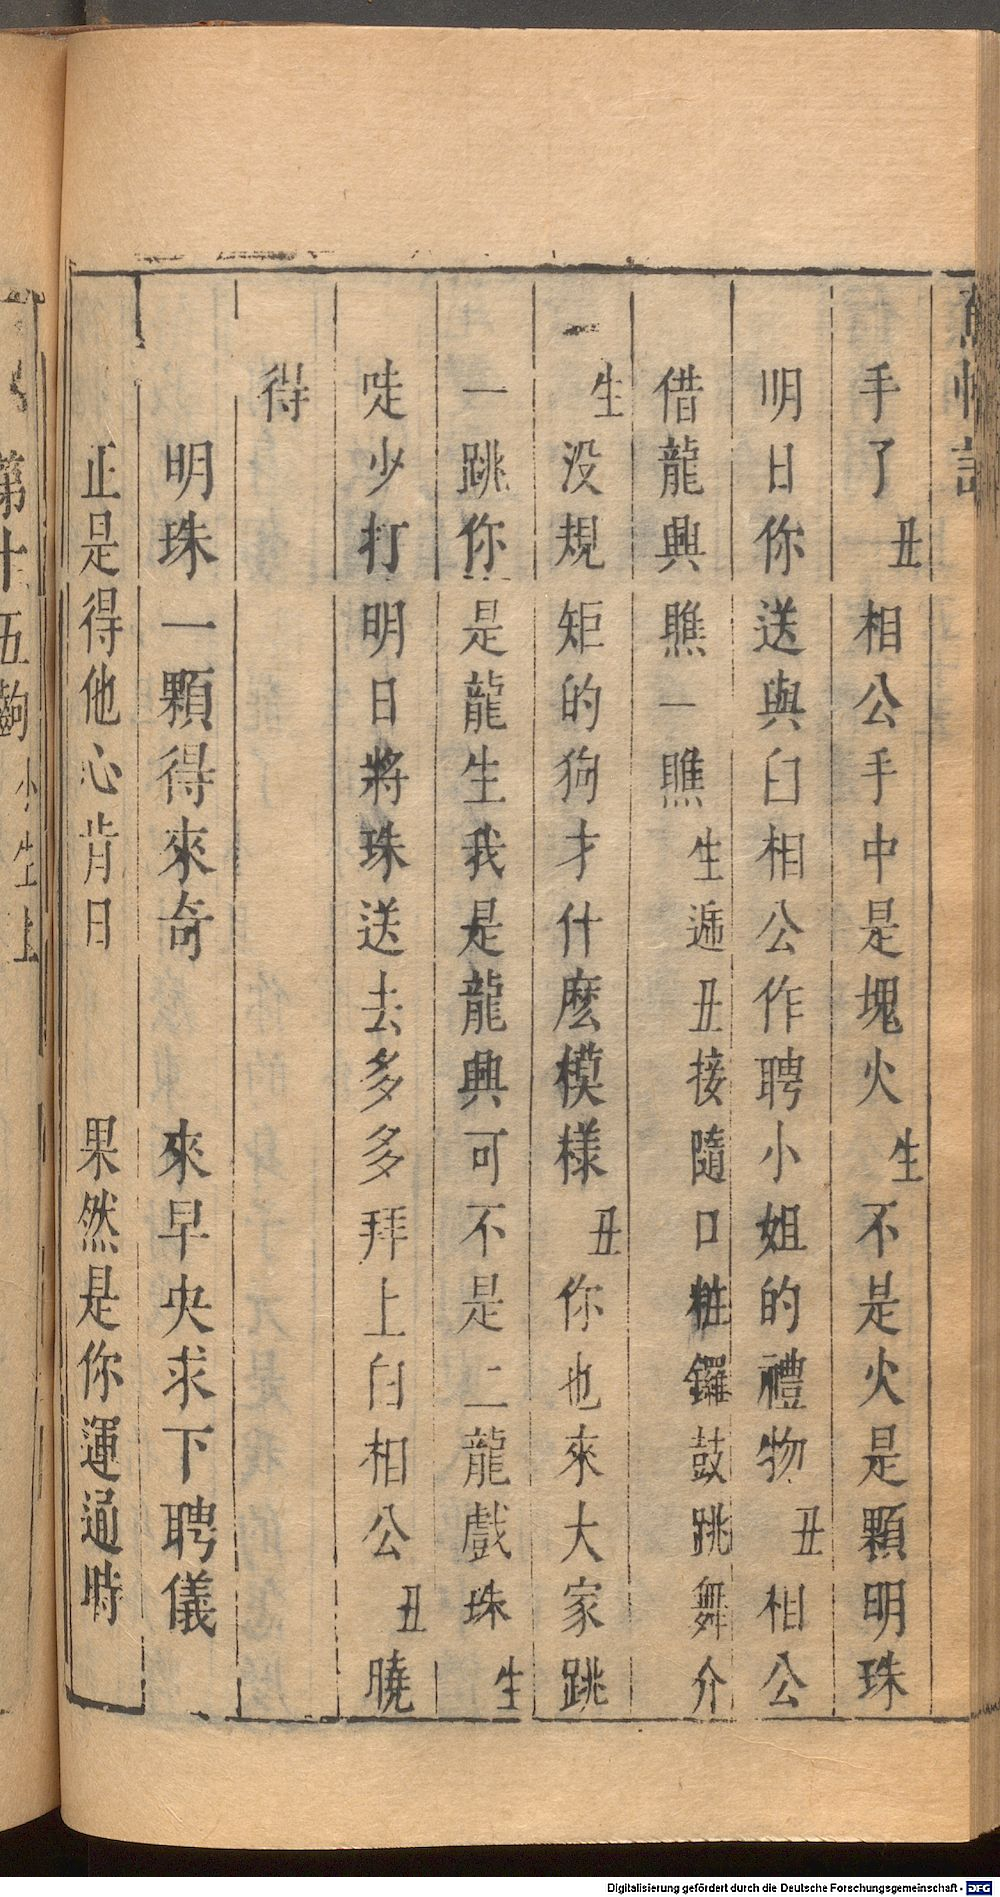 手了丑相公手中是塊火生不是火是顆明珠
明日你送與白相公作聘小姐的禮物丑相公
借龍興瞧一瞧生遞丑接隨口粧鑼鼓跳舞介
生没規矩的狗才什麽模樣丑你也來大家跳
一跳你是龍生我是龍興可不是二龍戲珠生
唗少打明日將珠送去多多拜上白相公丑曉
得
明珠一顆得來奇 來早央求下聘儀
正是得他心肯日 果然是你運通時
第十五齣小生上
Digitalisierung gefördert durch die Deutsche Forschungsgemeinschaft - DFG